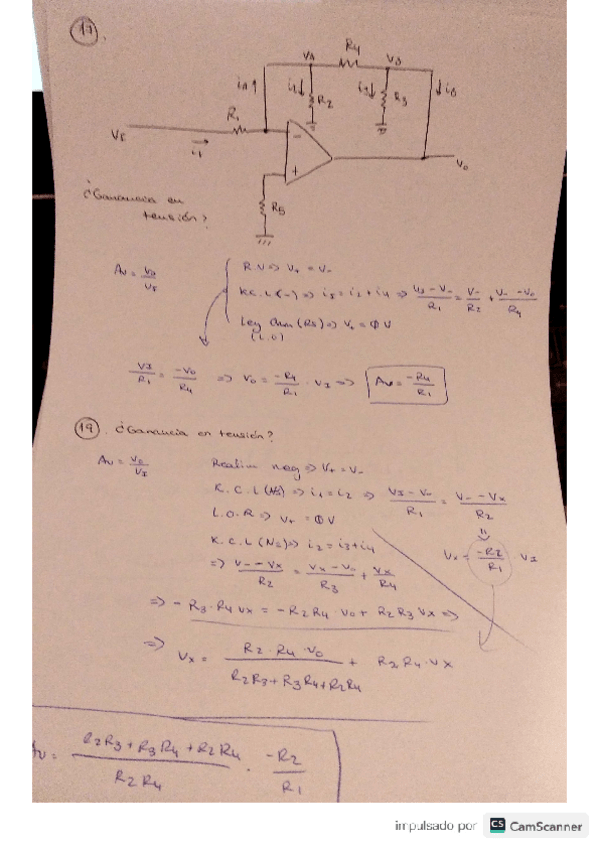 17.
VA R4 VB
iA i2 R2 i3 R3 iB
R1
VI
i1
- 
+
Vo
R5
¿Ganancia en
tensión?
Av = Vo/VI
R.N => V+ = V-
K.C.L (-) => i1 = i2 + i4 => (VI - V-)/R1 = V-/R2 + (V- - Vo)/R4
Ley Ohm (R5) => V+ = 0V
(L.O)
VI/R1 = -Vo/R4 => Vo = -R4/R1 · VI => Av = -R4/R1
19. ¿Ganancia en tensión?
Av = Vo/VI
Realim neg => V+ = V-
K.C.L (N1) => i1 = i2 => (VI - V-)/R1 = (V- - Vx)/R2
L.O.R => V+ = 0V
K.C.L (N2) => i2 = i3 + i4
Vx = -R2/R1 VI
=> (V- - Vx)/R2 = (Vx - Vo)/R3 + Vx/R4
=> - R3·R4 Vx = -R2R4 Vo + R2R3 Vx =>
=> Vx = R2·R4·Vo/(R2R3+R3R4+R2R4) + R2R4·Vx
Av = (R2R3 + R3R4 + R2R4)/(R2R4) · -R2/R1
impulsado por CS CamScanner